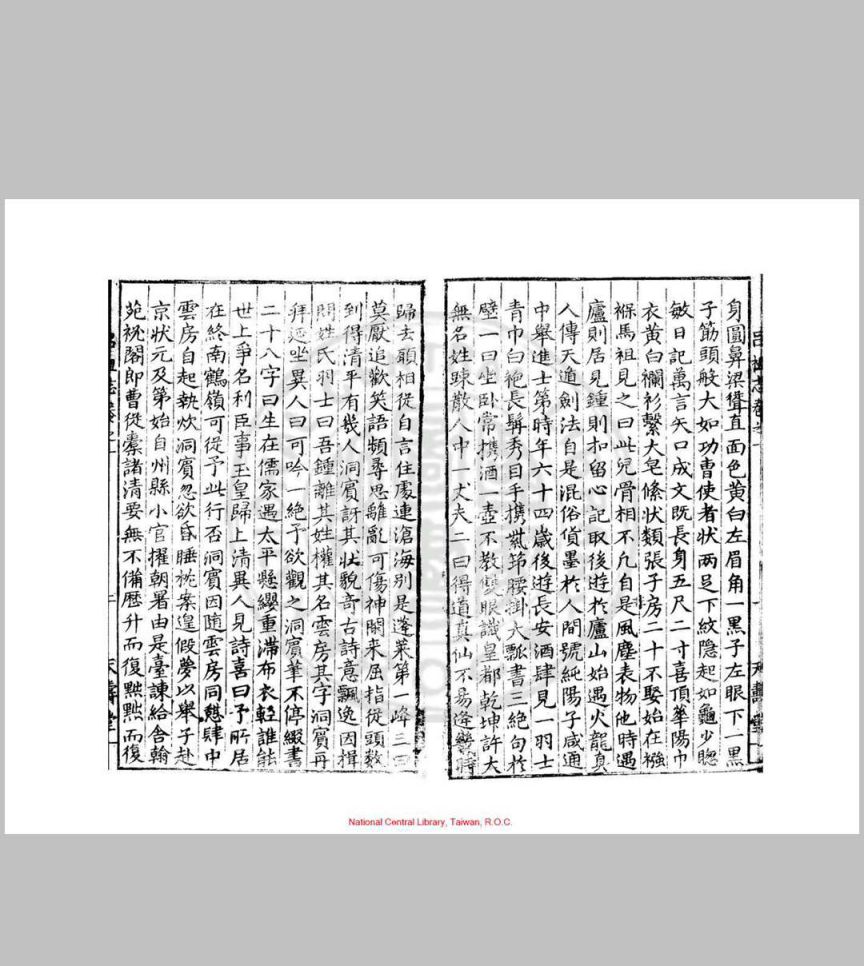 身圓鼻梁聳直面色黃白左眉角一黑子左眼下一黑
子筋頭般大如功曹使者状兩足下紋隱起如龜少聰
敏日記萬言矢口成文既長身五尺二寸喜頂華陽巾
衣黃白襴衫繫大皂絛状類張子房二十不娶始在襁
褓馬祖見之曰此兒骨相不凢自是風塵表物他時遇
廬則居見鍾則扣留心記取後遊於廬山始遇火龍真
人傳天遁劍法自是混俗貨墨於人間號純陽子咸通
中舉進士第時年六十四歲後遊長安酒肆見一羽士
青巾白袍長髯秀目手携紫筇腰掛大瓢書三絕句於
壁一曰坐卧常携酒一壺不教雙眼識皇都乾坤許大
無名姓踈散人中一丈夫二曰得道真仙不易逢幾時
歸去願相從自言住處連滄海别是蓬萊第一峰三曰
莫厭追歡笑語頻尋思離亂可傷神閑来屈指從頭數
到得清平有幾人洞賓訝其状貌竒古詩意飄逸因揖
問姓氏羽士曰吾鍾離其姓權其名雲房其字洞賓再
拜延坐異人曰可吟一絕予欲觀之洞賓筆不停綴書
二十八字曰生在儒家遇太平懸纓重滯布衣輕誰能
世上爭名利臣事玉皇歸上清異人見詩喜曰予所居
在終南鶴嶺可從予此行否洞賓因隨雲房同憩肆中
雲房自起執炊洞賓忽欲昏睡枕案遑假夢以舉子赴
京状元及第始自州縣小官擢朝署由是臺諫給舍翰
苑秘閣郎曹從橐諸清要無不備歷升而復黜黜而復
National Central Library, Taiwan, R.O.C.